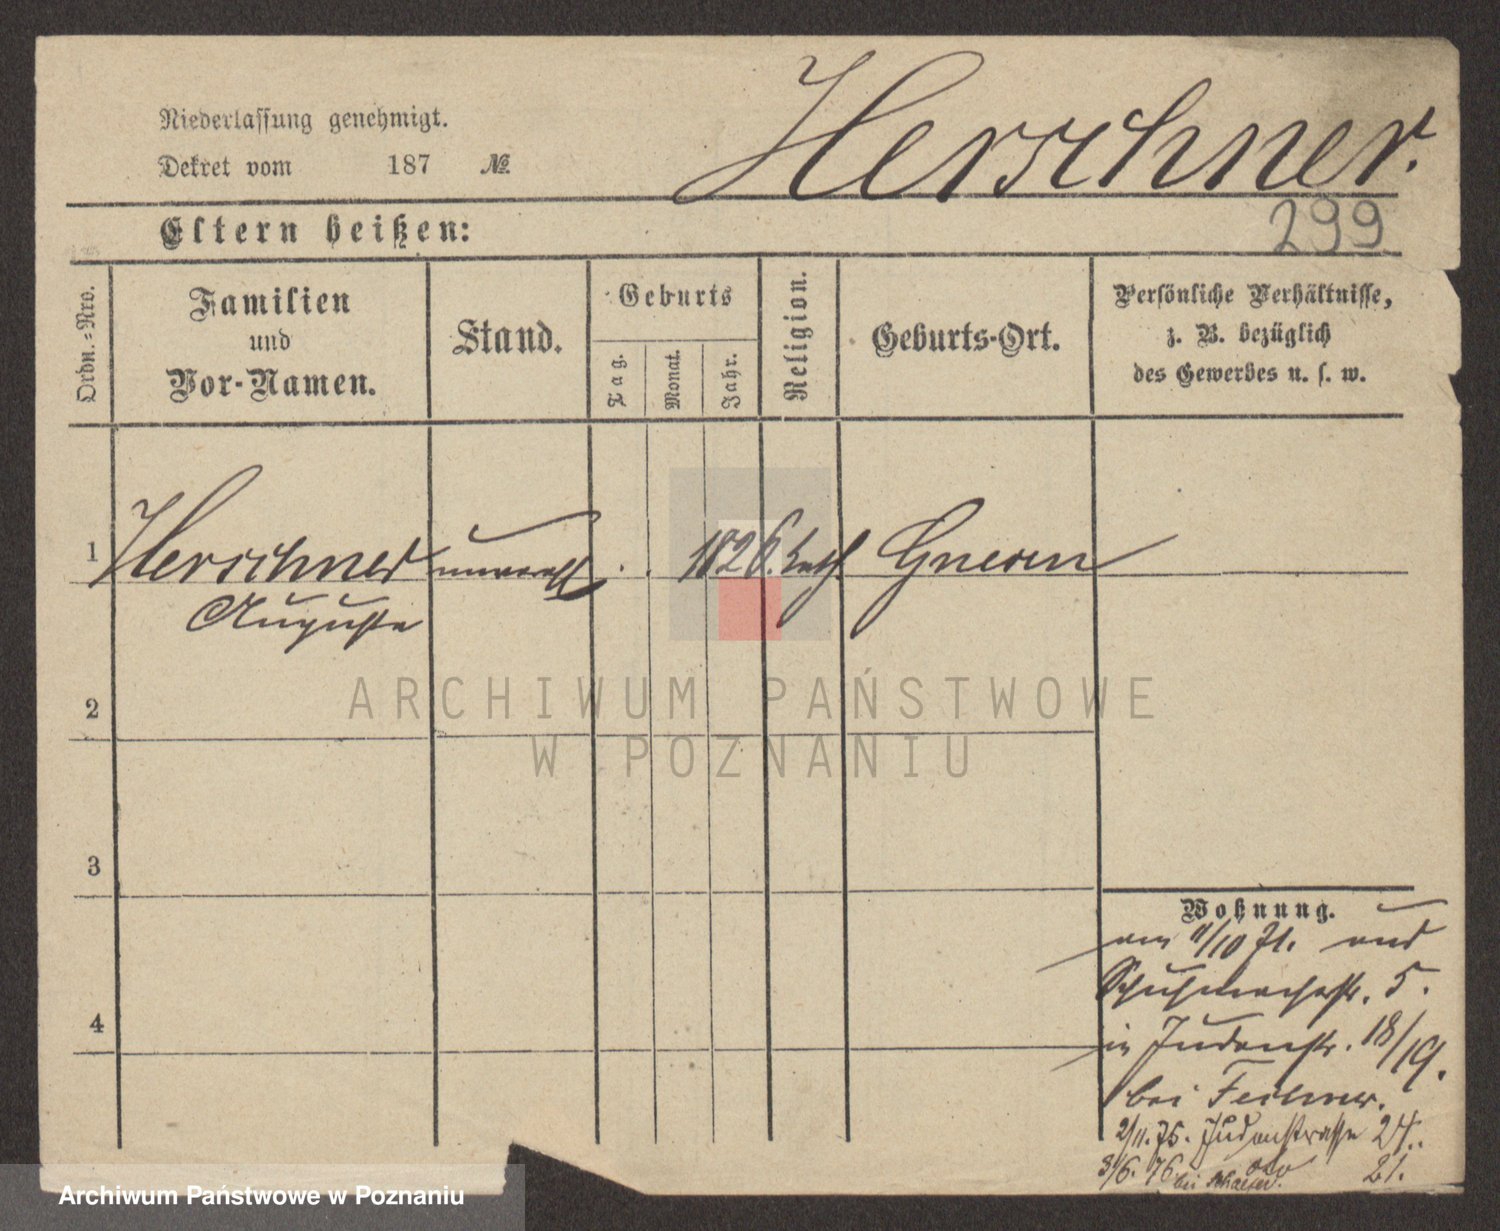 Herschner.
Niederlassung genehmigt.
Dekret vom 187 №
Eltern heißen:
299
Ordn.-Nro.
Familien
und
Vor-Namen.
Stand.
Geburts
Tag.
Monat.
Jahr.
Religion.
Geburts-Ort.
Persönliche Verhältnisse,
z. B. bezüglich
des Gewerbes u. s. w.
1 Herschner unverehl. 1826. kath. Gnesen
Auguste
ARCHIWUM PAŃSTWOWE
W POZNANIU
2
3
4
Wohnung.
am 11/10 71. aus
Schuhmacherstr. 5.
in Judenstr. 18/19.
bei
2/11. 75. Judenstrasse 24.
3/6. 76 bei 21.
Archiwum Państwowe w Poznaniu